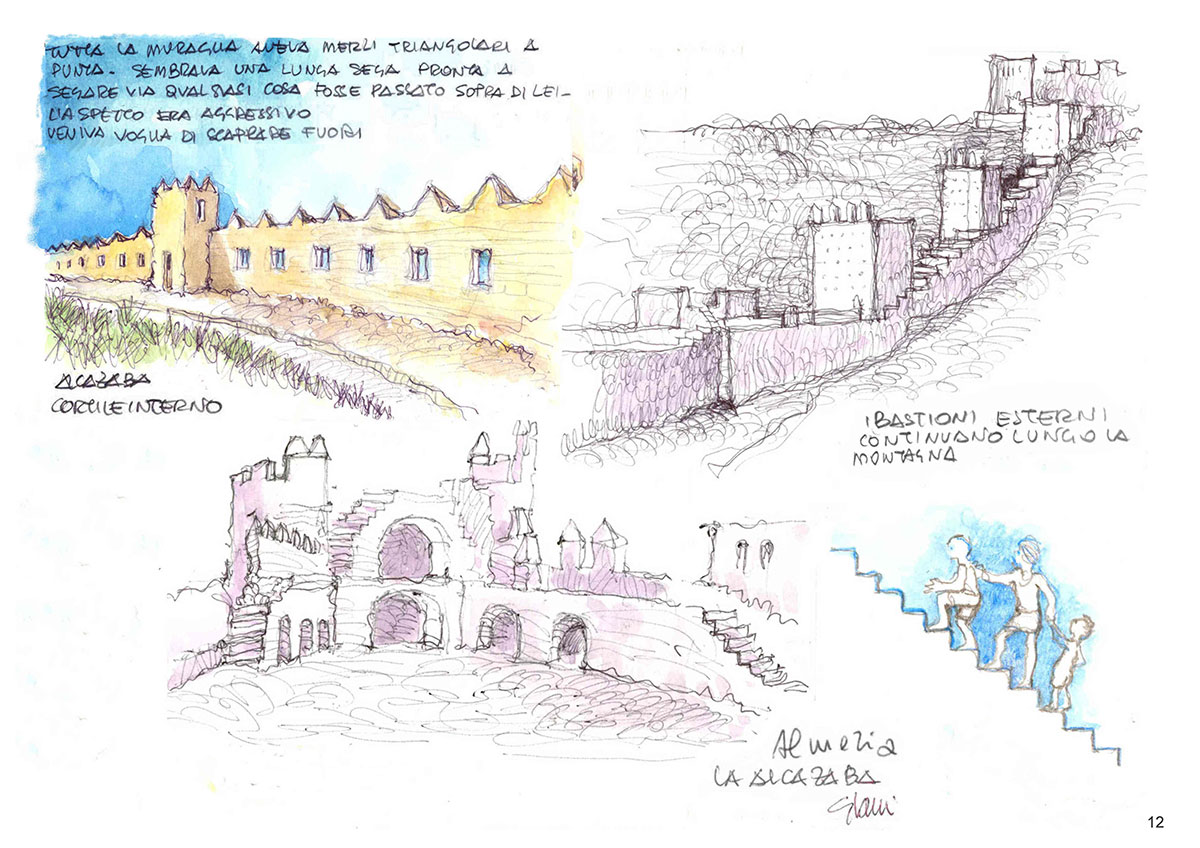 TUTTA LA MURAGLIA AVEVA MERLI TRIANGOLARI A
PUNTA - SEMBRAVA UNA LUNGA SEGA PRONTA A
SEGARE VIA QUALSIASI COSA FOSSE PASSATO SOPRA DI LEI -
L'ASPETTO ERA AGGRESSIVO
VENIVA VOGLIA DI SCAPPARE FUORI
ALCAZABA
CORTILE INTERNO
I BASTIONI ESTERNI
CONTINUANO LUNGO LA
MONTAGNA
Almeria
LA ALCAZABA
12